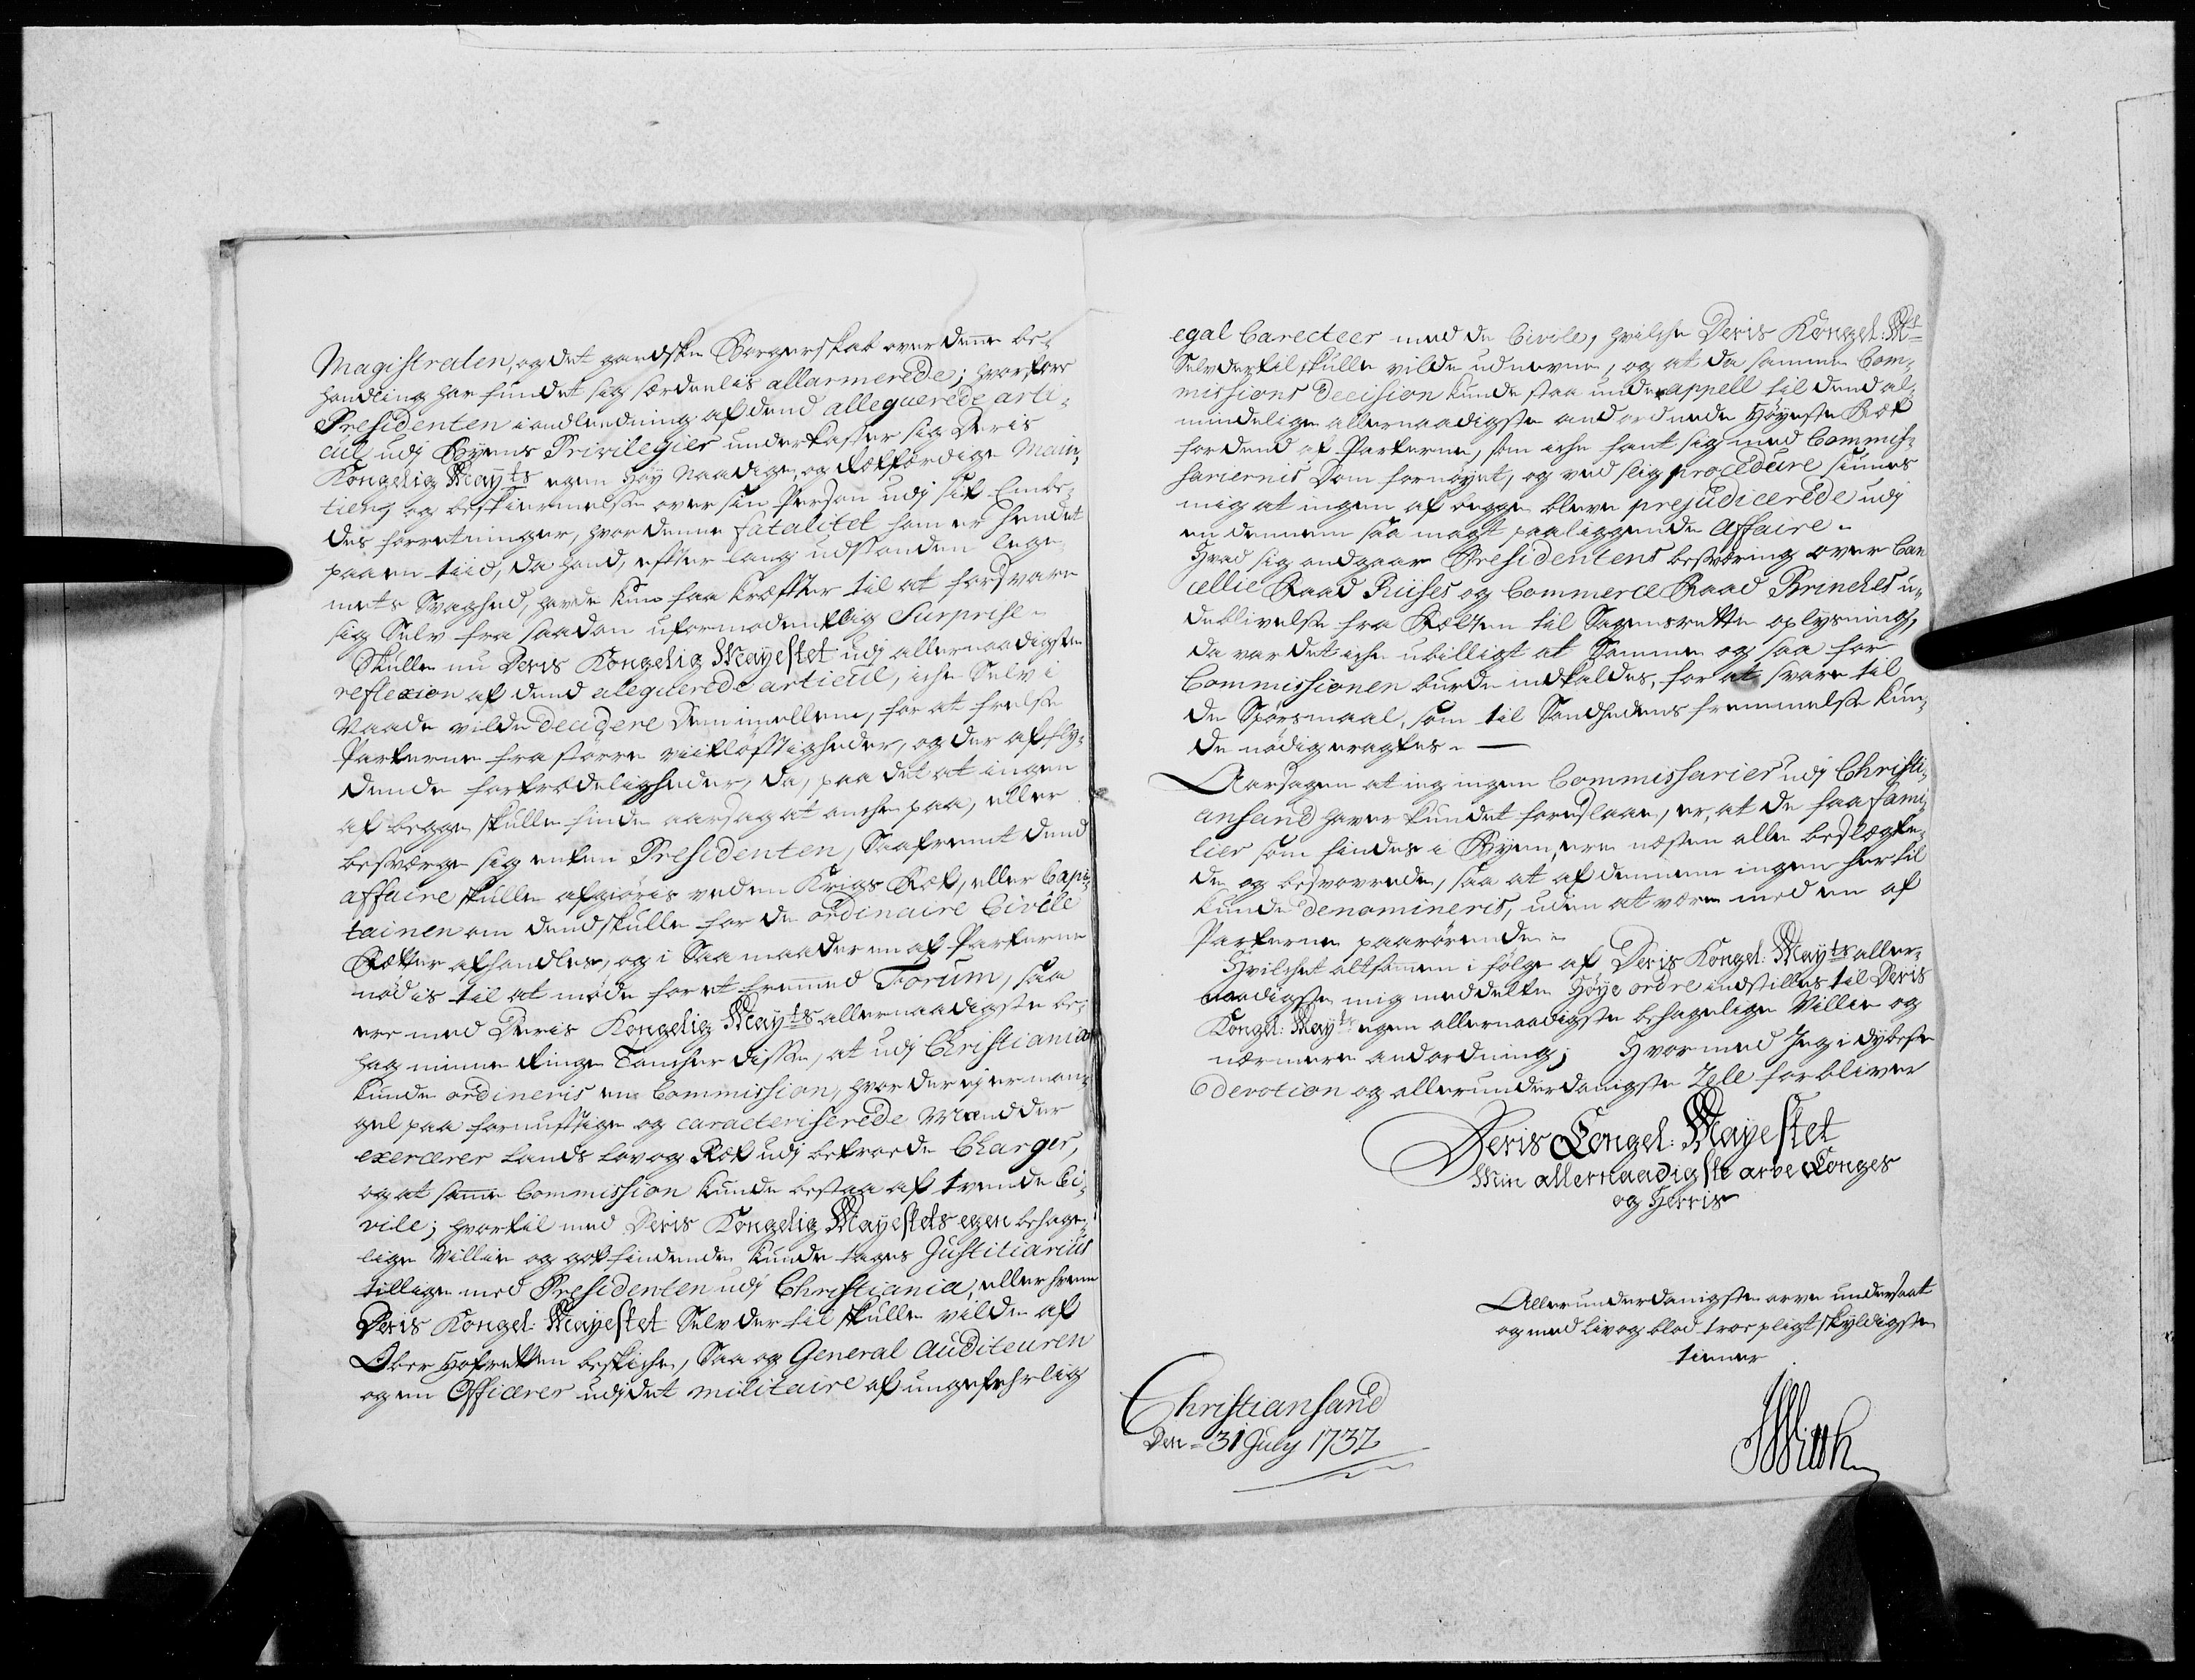 Magistraten, og det gandske Borgerskab over denne be-
handling har fundet sig særdeelis allarmerede; hvorfore
Presidenten i andleedning af dend alleguerede arti-
cul udj Byens Privilegier underkaster sig Deris
Kongelig Mayts egen Høy Naadige, og Retfærdige Main-
tien, og beskiermelse over sin Person udj sit Embe-
des forretninger, hvor denne fatalitet ham er hendet
paa en tiid, da hand, efter lang udstanden lege-
mets Svaghed, havde kun faa kræfter til at forsvare
sig Selv fra saadan uformodentlig Surprise.
Skulle nu Deris Kongelig Mayestet udj allernaadigste
reflexion af dend aleguerede articul, iche Selv i
Naade vilde decidere Dem imellem, for at frelse
Parterne fra større viitløftigheder, og der af fly-
dende fortrædeligheder, da, paa det at ingen
af begge skulle finde aarsag at anche paa, eller
besværge sig enten Presidenten, Saafremt dend
affaire skulle afgiøris ved en Krigs Ret, eller Capi-
tainen om dend skulle for de ordinaire Civile
Retter afhandles, og i Saa maader en af Parterne
nødis til at møde for et fremmed Forum, saa
ere med Deris Kongelig Mayts allernaadigste be-
hag minne ringe Tancher disse, at udj Christiania
kunde ordineris en Commission, hvor der ej er man-
gel paa fornuftige og caracteriserede Mænd der
exercerer Lands Lov og Ret udj betroede Charger,
og at samme Commission kunde bestaa af tvende Ci-
vile; hvortil med Deris Kongelig Mayestets egen behage-
lige Villie og gotfindende kunde tages Justitiarius
tillige med Presidenten udj Christiania, eller hvem
Deris Kongel: Mayestet Selv der til skulle vilde af
Ober Hofretten beskiche, Saa og General Auditeuren
og en Officerer udj det militaire af ungefehrlig
egal Carecteer med de Civile, hvilche Deris Kongel: Mts
Selv dertil skulle vilde udnevne, og at da samme Com-
missions Decision kunde staa under appell til dend al-
mindelige allernaadigste andordnede Høyeste Ret
for dend af Parterne, som iche fant sig med Commis-
sariernis Dom fornøyet, og ved slig procedure siunes
mig at ingen af begge bleve prejudicerede udj
en dennem saa magt paaliggende Affaire.
Hvad sig andgaar Presidentens besværing over Can
cellie Raad Ruses og Commerce Raad Brinches u-
deblivelse fra Retten til Sagens rette oplysning,
da var det iche ubilligt at Samme og saa for
Commissionen burde indkaldes, for at svare til
de Spørsmaal, som til Sandhedens fremmelse kun-
de nødig eragtes.
Aarsagen at ieg ingen Commissarier udj Christi-
ansand haver kundet foreslaae, er, at de faa fami-
lier som findes i Byen, ere næsten alle beslægte-
de og besvogrede, saa at af dennem ingen hertil
kunde denomineris, uden at være med en af
Parterne paarørende.
Hvilchet altsammen i følge af Deris Kongel: Mayts aller-
naadigste mig meddelte Høye ordre indstilles til Deris
Kongel: Mayts egen allernaadigste behagelige Villie og
nærmere andordning; Hvormed Jeg i dybeste
devotion og allerunderdanigste Zele forbliver
Deris Kongel: Mayestet
Min allernaadigste arve Konges
og Herris
Allerunderdanigste arve undersaat
og med liv og blod troe pligt skyldigste
tienner
Christiansand
Den 31 July 1737